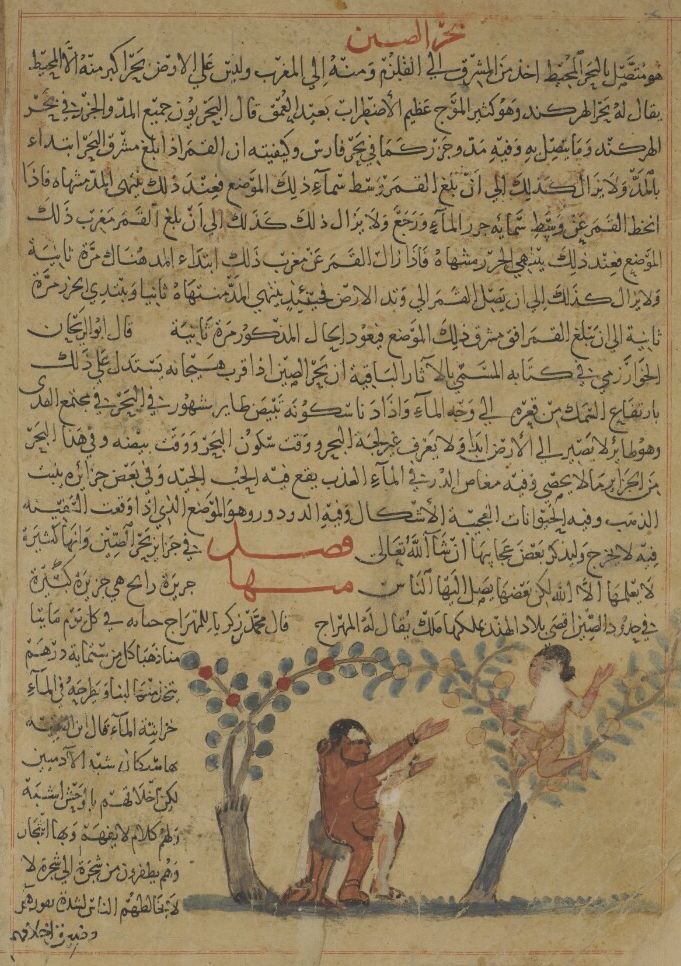 بحر الصين
هو متصل بالبحر المحيط اخذ من المشرق الى القلزم ومنه الى المغرب وليس على الارض بحرا اكبر منه الا المحيط
يقال له بحر الهركند وهو كثير الموج عظيم الاضطراب بعيد العمق قال البحريون جميع المد والجزر في بحر
الهركند وما يتصل به وفيه مد وجزر كما في بحر فارس وكيفيته ان القمر اذا بلغ مشرق البحر ابتداء
بالمد ولا يزال كذلك الى ان بلغ القمر وسط سماء ذلك الموضع فعند ذلك ينتهي المد منتهاه فاذا
انحط القمر عن وسط سمايه جزر الماء ورجع ولا يزال ذلك كذلك الى ان بلغ القمر مغرب ذلك
الموضع فعند ذلك ينتهي الجزر منتهاه فاذا زال القمر عن مغرب ذلك ابتداء المد هناك مرة ثانية
ولا يزال كذلك الى ان يصل القمر الى وتد الارض فحينئذ ينتهي المد منتهاه ثانيا ويبتدي الجزر مرة
ثانية الى ان يبلغ القمر افق مشرق ذلك الموضع فيعود الحال المذكور مرة ثانية قال ابو الريحان
الخوارزمي في كتابه المسمى الآثار الباقية ان بحر الصين اذا قرب هيجانه يستدل على ذلك
بارتفاع السمك من قعره الى وجه الماء واذا دنا سكونه تبيض طاير مشهور في البحر في مجتمع القذى
وهو طائر لا يصير الى الارض ابدا ولا يعرف غير لجة البحر ووقت سكون البحر ووقت بيضه وفي هذا البحر
من الجزاير ما لا يحصى وفيه مغاص الدر في الماء العذب يقع فيه الحب الجيد وفي بعض جزائره ينبت
الذهب وفيه الحيوانات العجيبة الاشكال وفيه الدردور وهو الموضع الذي اذا وقعت السفينة
فيه لا يخرج وليذكر بعض عجايبها ان شاء الله تعالى فصل في جزاير بحر الصين وانها كثيرة
لا يعلمها الا الله لكن بعضها يصل اليها الناس منها جزيرة رانج هي جزيرة كبيرة
في حدود الصين اقصى بلاد الهند يملكها ملك يقال له المهراج قال محمد بن زكريا للمهراج جبايه في كل يوم مايتا
منا ذهبا كل من ستماية درهم
يتخذ منها لبنا ويطرحه في الماء
خزانته الماء قال ابن الفقيه
بها سكان شبه الآدميين
لكن اخلاقهم بالوحش اشبه
ولهم كلام لا يفهم وبها اشجار
وهم يطفرون من شجرة الى شجرة لا
يخالطهم الناس لشدة نفورهم